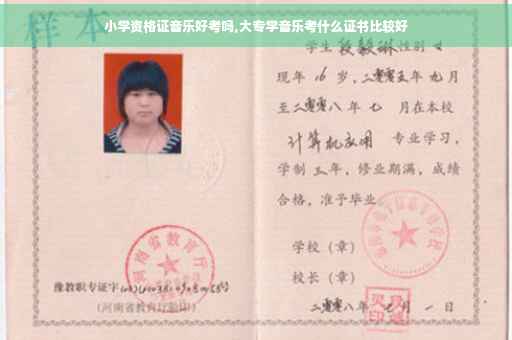 小学资格证音乐好考吗,大专学音乐考什么证书比较好
样本
学生段毅琳性别女
现年16岁，二零零五年九月
至二零零八年七月在本校
计算机应用专业学习，
学制三年，修业期满，成绩
合格，准予毕业。
学校（章）
校长（章）
河南省教育厅
豫教职专证字
(河南省教育厅验印)
二零零八年七月一日